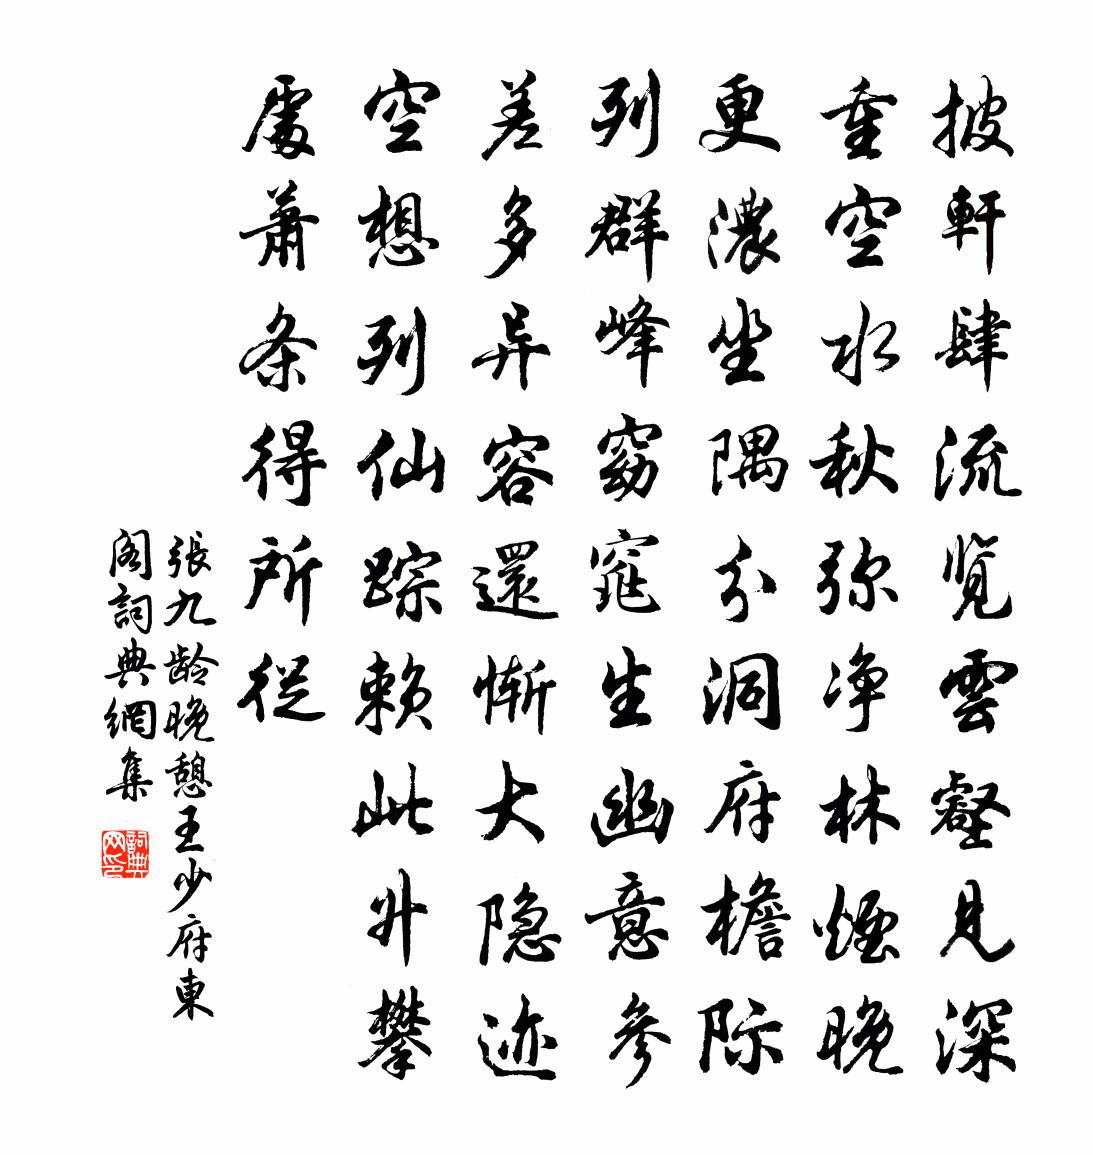 披軒肆流览雲壑見深
重空水秋弥净林煙晚
更濃坐隅分洞府檐际
列群峰窈窕生幽意參
差多异容還惭大隐迹
空想列仙踪赖此升攀
處蕭条得所從
張九龄晚憩王少府東
阁詞典網集
詞典网印